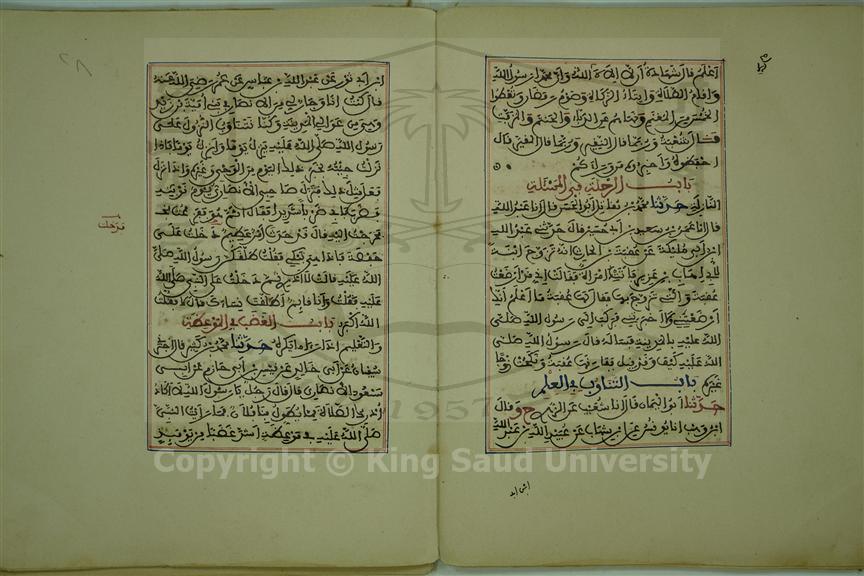 اعلم قال شهادة أن لا إله إلا الله وأن محمدا رسول الله
وإقام الصلاة وإيتاء الزكاة وصوم رمضان وتعطوا
الخمس من المغنم ونهاهم عن الدباء والحنتم والمزفت
قال شعبة وربما قال النقير وربما قال المقير قال
احفظوه وأخبروه من وراءكم
باب الرحلة في المسئلة
النازلة حدثنا محمد بن مقاتل أبو الحسن قال أنا عبد الله
قال أنا عمر بن سعيد بن أبي حسين قال حدثني عبد الله
ابن أبي مليكة عن عقبة بن الحارث أنه تزوج ابنة
لأبي إهاب بن عزيز فأتته امرأة فقالت إني قد أرضعت
عقبة والتي تزوج بها فقال لها عقبة ما أعلم أنك
أرضعتني ولا أخبرتني فركب إلى رسول الله صلى
الله عليه بالمدينة فسأله فقال رسول الله صلى
الله عليه كيف وقد قيل ففارقها عقبة ونكحت زوجا
غيره باب التناوب في العلم
حدثنا أبو اليمان قال أنا شعيب عن الزهري ح وقال
ابن وهب أنا يونس عن ابن شهاب عن عبيد الله بن عبد الله
ابن أبي
ابن أبي ثور عن عبد الله بن عباس عن عمر رضي الله عنه
قال كنت أنا وجار لي من الأنصار في بني أمية بن زيد
وهي من عوالي المدينة وكنا نتناوب النزول على
رسول الله صلى الله عليه ينزل يوما وأنزل يوما فإذا
نزلت جئته بخبر ذلك اليوم من الوحي وغيره وإذا نزل
فعل مثل ذلك فنزل صاحبي الأنصاري يوم نوبته
فضرب بابي ضربا شديدا فقال أثم هو ففزعت
فخرجت إليه فقال قد حدث أمر عظيم دخلت على
حفصة فإذا هي تبكي فقلت طلقكن رسول الله صلى
الله عليه قالت لا أدري ثم دخلت على النبي صلى الله
عليه فقلت وأنا قائم أطلقت نساءك قال لا فقلت
الله أكبر باب الغضب في الموعظة
والتعليم إذا رأى ما يكره حدثنا محمد بن كثير قال أخبرني
سفيان عن ابن أبي خالد عن قيس بن أبي حازم عن أبي
مسعود الأنصاري قال قال رجل يا رسول الله لا أكاد
أدرك الصلاة مما يطول بنا فلان فما رأيت النبي
صلى الله عليه في موعظة أشد غضبا من يومئذ
Copyright © King Saud University
1957